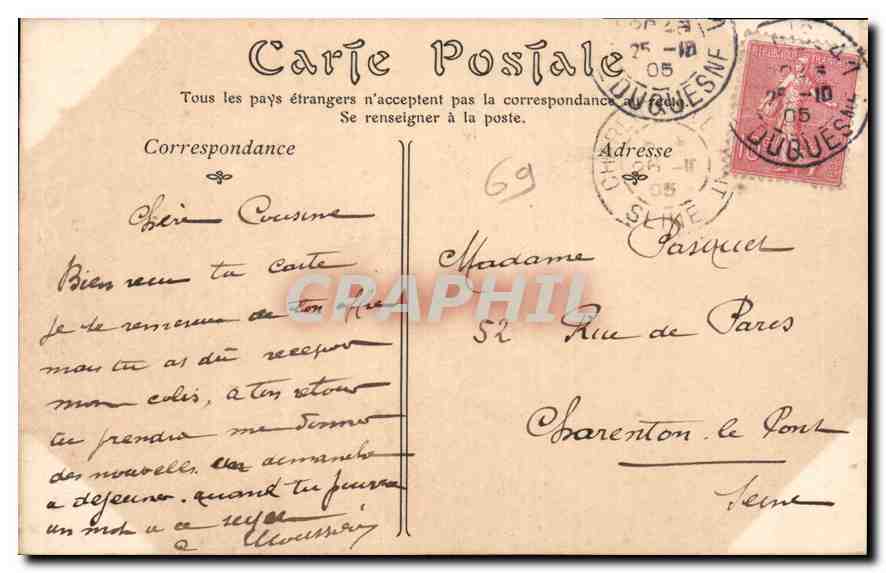 Carte Postale
Tous les pays étrangers n'acceptent pas la correspondance au recto.
Se renseigner à la poste.
Correspondance
Chère Cousine
Bien reçu ta carte
je te remercie de ton offre
mais tu as dû recevoir
mon colis, a ton retour
tu prendra me donner
des nouvelles un dimanche
a déjeuner. quand tu pourra
un mot a ce sujet
Adresse
69
Madame Pasquet
52 Rue de Paris
Charenton le Pont
Seine
25 -10
05
DUQUESNE
25 -10
05
DUQUESNE
05
SEINE
10
CPAPHIL